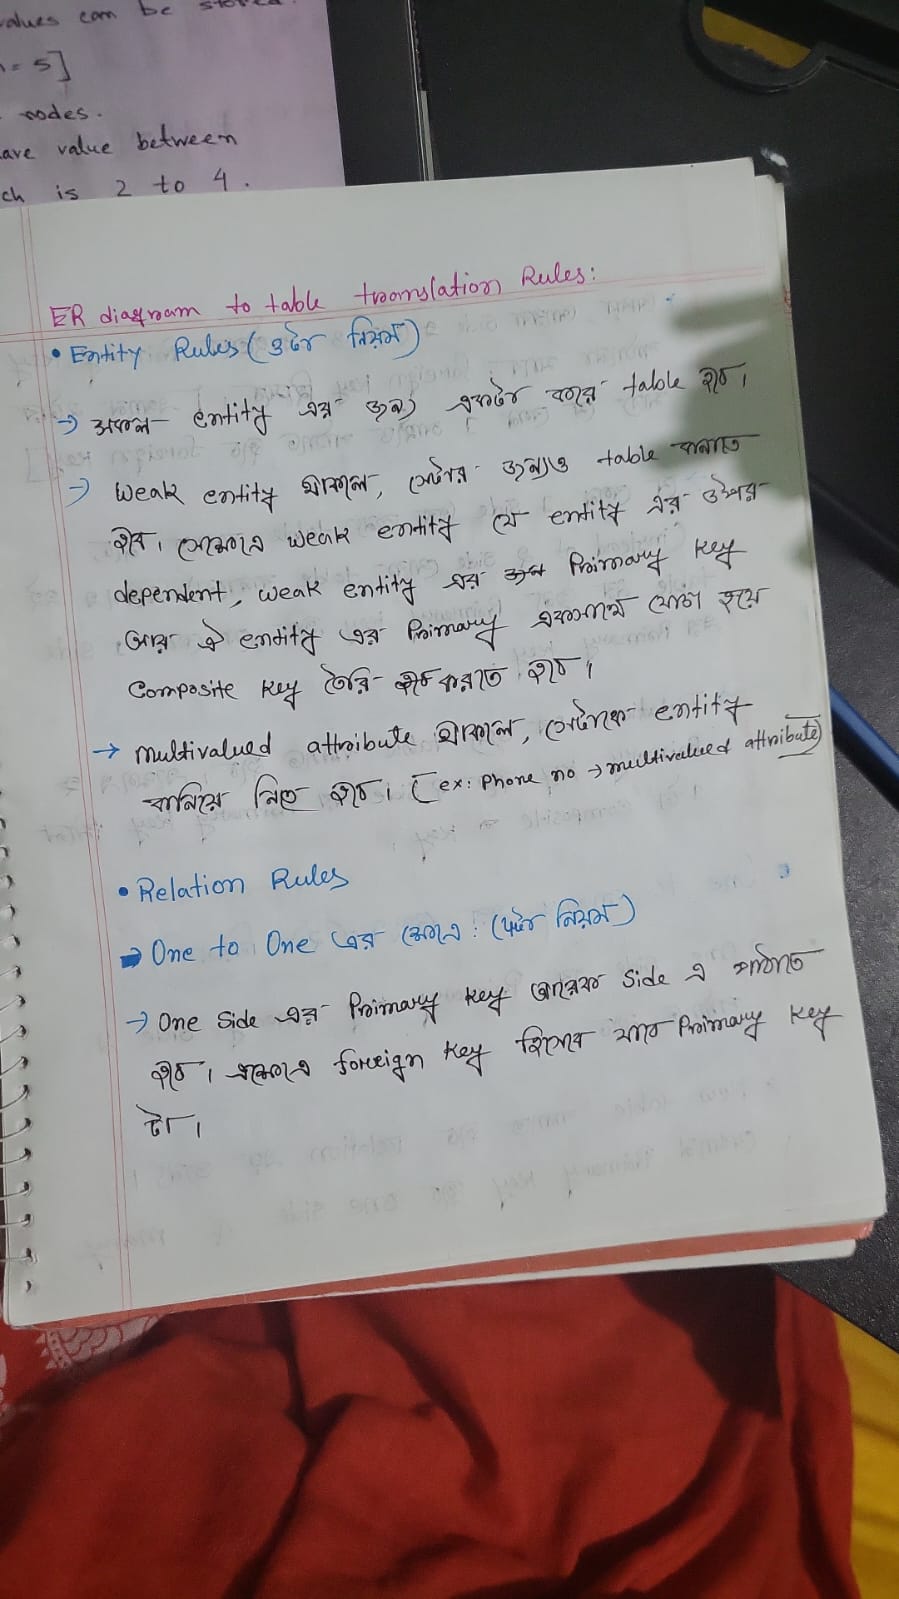 values can be stored.
= 5]
nodes.
ave value between
ch is 2 to 4.
ER diagram to table translation Rules:
• Entity Rules (৩টা নিয়ম)
→ সকল entity এর জন্য একটা করে table হবে।
→ Weak entity থাকলে, সেটার জন্যও table বানাতে
হবে। সেক্ষেত্রে weak entity যে entity এর উপর
dependent, weak entity এর Primary key
আর ঐ entity এর Primary একসাথে যোগ হয়ে
Composite key তৈরি করতে হবে।
→ multivalued attribute থাকলে, সেটাকে entity
বানিয়ে নিতে হবে। [ex: Phone no → multivalued attribute]
• Relation Rules
➡ One to One এর ক্ষেত্রে: (১টা নিয়ম)
→ One side এর Primary key আরেক side এ পাঠাতে
হবে। এক্ষেত্রে foreign key হিসেবে যাবে Primary key
টা।